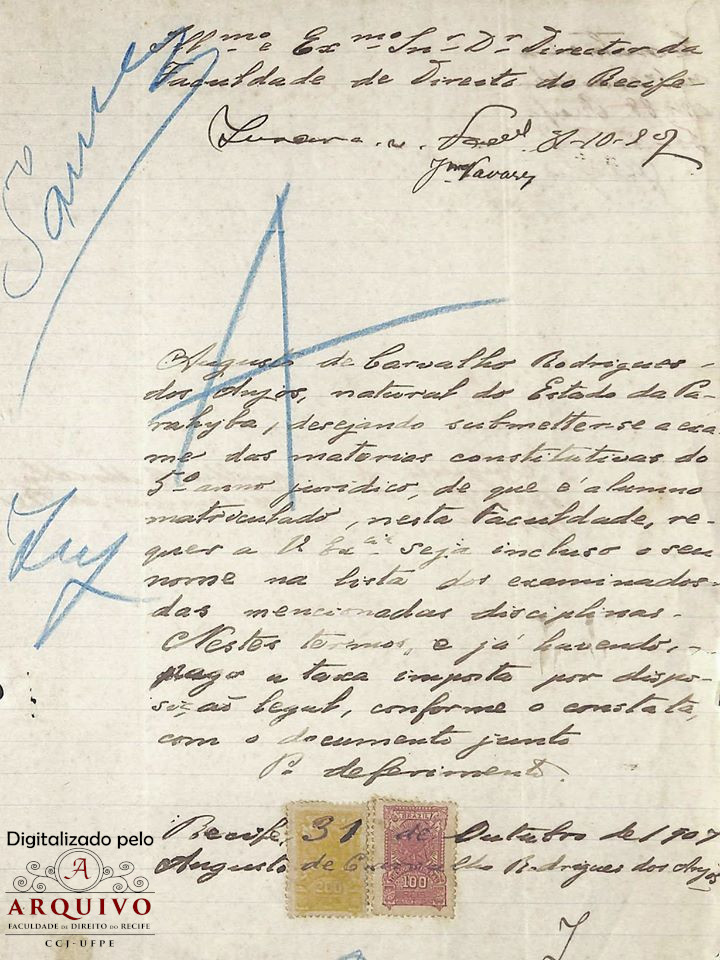 Ill.mo e Ex.mo Snr. Dr. Director da
Faculdade de Direito do Recife
31-10-907
Tavares
Augusto de Carvalho Rodrigues
dos Anjos, natural do Estado da Pa-
rahyba, desejando submetter-se a exa-
me das materias constitutivas do
5.º anno juridico, de que é alumno
matriculado, nesta Faculdade, re-
quer a V. Ex.cia seja incluso o seu
nome na lista dos examinados
das mencionadas disciplinas.
Nestes termos, e já havendo,
pago a taxa imposta por dispo-
sição legal, conforme o constata,
com o documento junto
P.º deferimento.
Recife, 31 de Outubro de 1907
Augusto de Carvalho Rodrigues dos Anjos
BRAZIL
200
100
A
Digitalizado pelo
A
ARQUIVO
FACULDADE DE DIREITO DO RECIFE
CCJ-UFPE